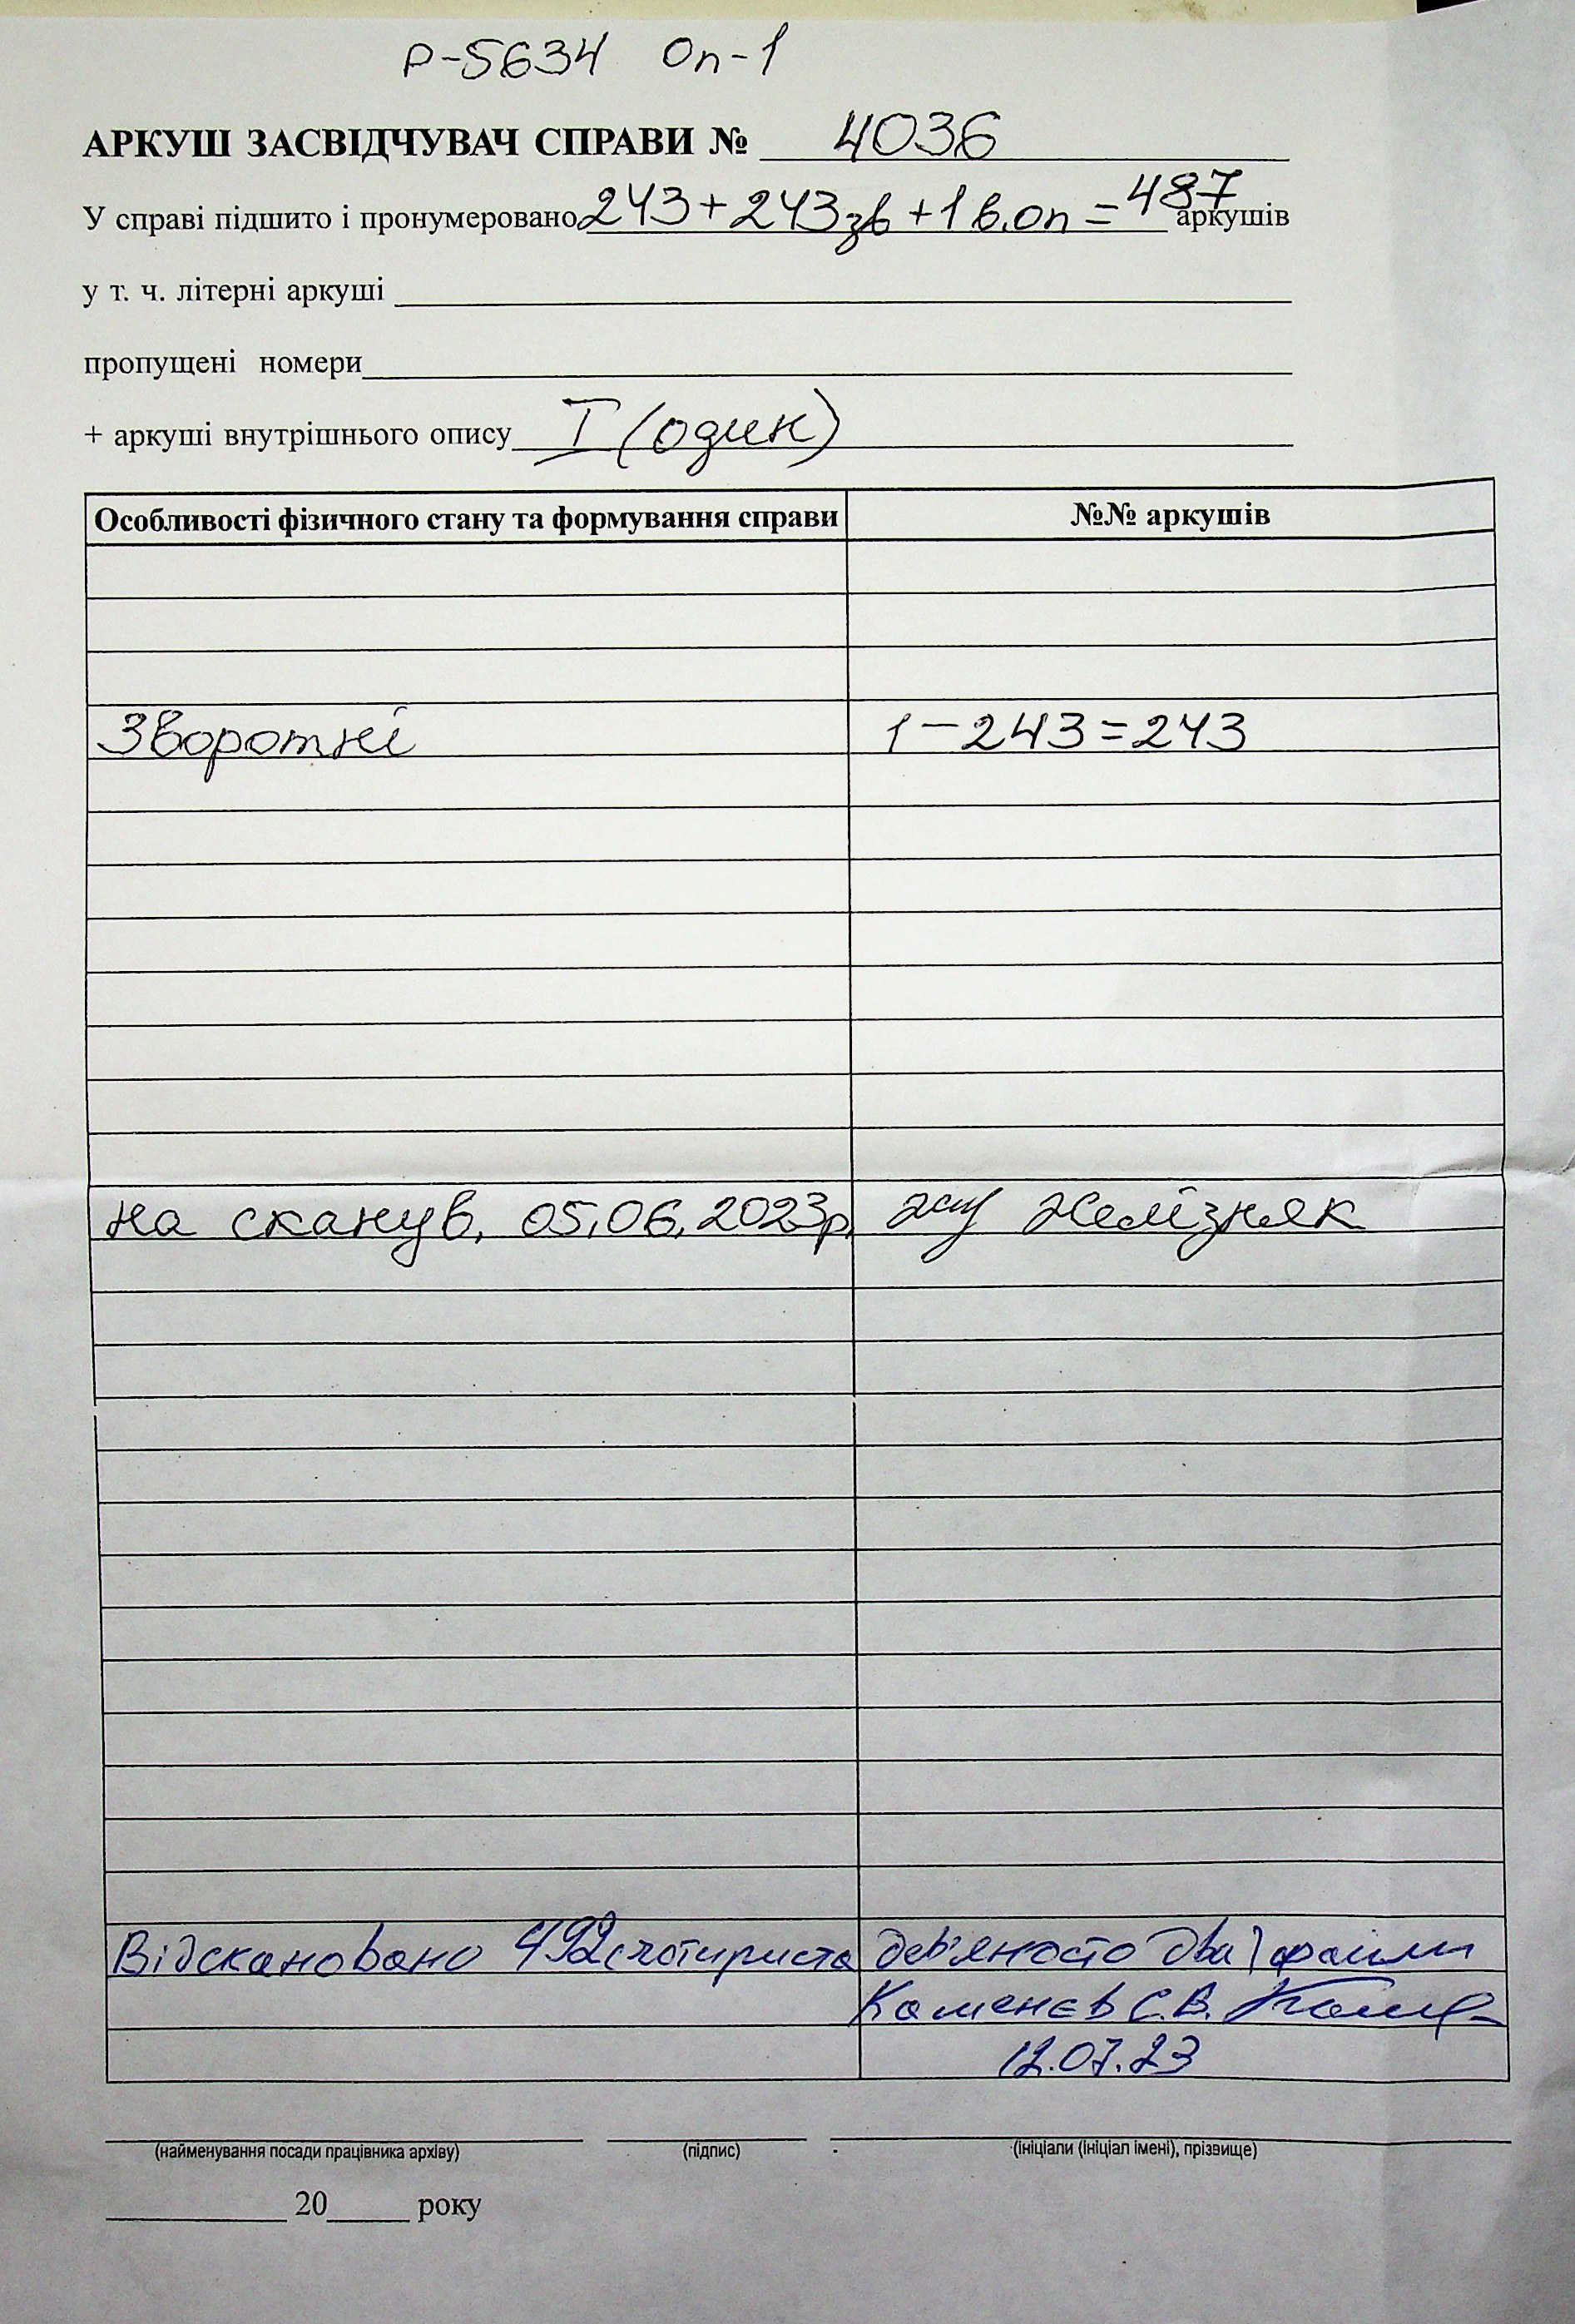 Р-5634 Оп-1
АРКУШ ЗАСВІДЧУВАЧ СПРАВИ № 4036
У справі підшито і пронумеровано 243+243зв+1в.оп=487 аркушів
у т. ч. літерні аркуші
пропущені номери
+ аркуші внутрішнього опису I (один)
Особливості фізичного стану та формування справи №№ аркушів
Зворотні 1-243=243
на сканув. 05.06.2023р. Желізняк
Відскановано 492(чотириста дев'яносто два) файли
Каменєв С.В.
12.07.23
(найменування посади працівника архіву) (підпис) (ініціали (ініціал імені), прізвище)
20 року